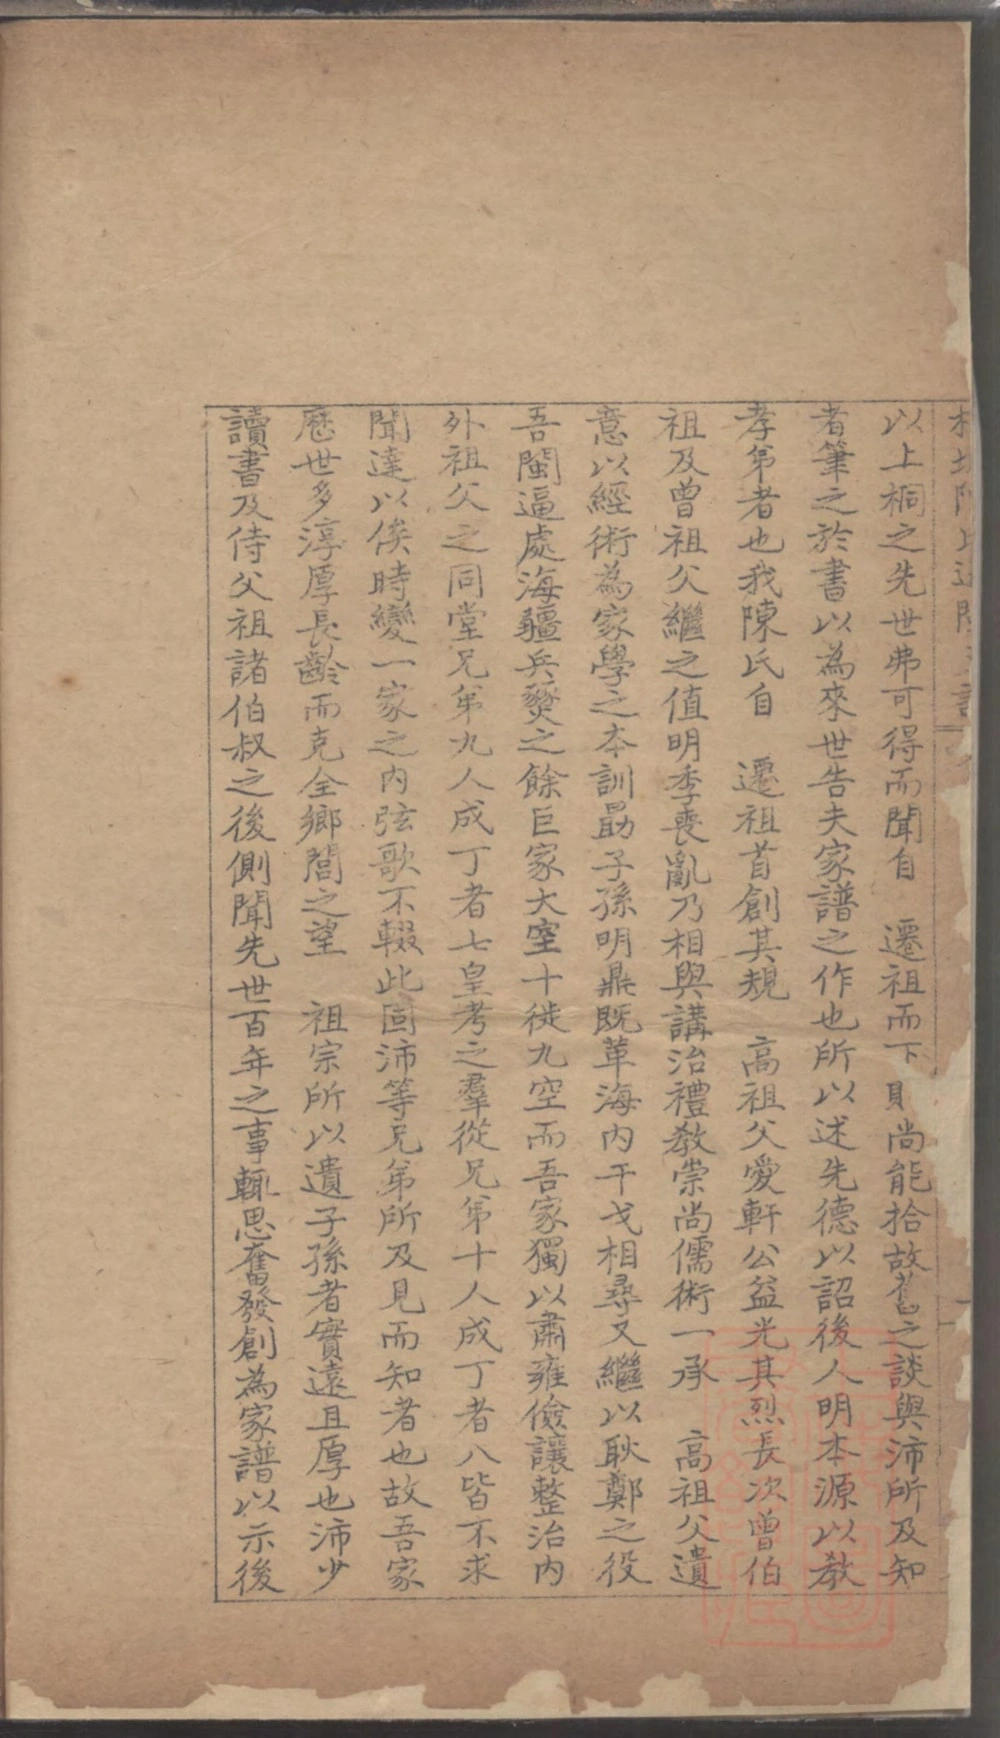 以上桐之先世弗可得而聞自　遷祖而下　尚能拾故舊之談與沛所及知
者筆之於書以為來世告夫家譜之作也所以述先德以詔後人明本源以教
孝弟者也我陳氏自　遷祖首創其規　高祖父愛軒公益光其烈長次曾伯
祖及曾祖父繼之值明季喪亂乃相與講治禮教崇尚儒術一承　高祖父遺
意以經術為家學之本訓勗子孫明鼎既革海内干戈相尋又繼以耿鄭之役
吾閩逼處海疆兵燹之餘巨家大室十徙九空而吾家獨以肅雍儉讓整治内
外祖父之同堂兄弟九人成丁者七皇考之羣從兄弟十人成丁者八皆不求
聞達以俟時變一家之内弦歌不輟此固沛等兄弟所及見而知者也故吾家
歷世多淳厚長齡而克全鄉閭之望　祖宗所以遺子孫者實遠且厚也沛少
讀書及侍父祖諸伯叔之後側聞先世百年之事輒思奮發創為家譜以示後